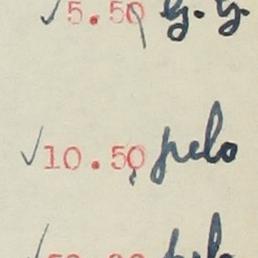 ✓5.50 G. G.
✓10.50 pelo